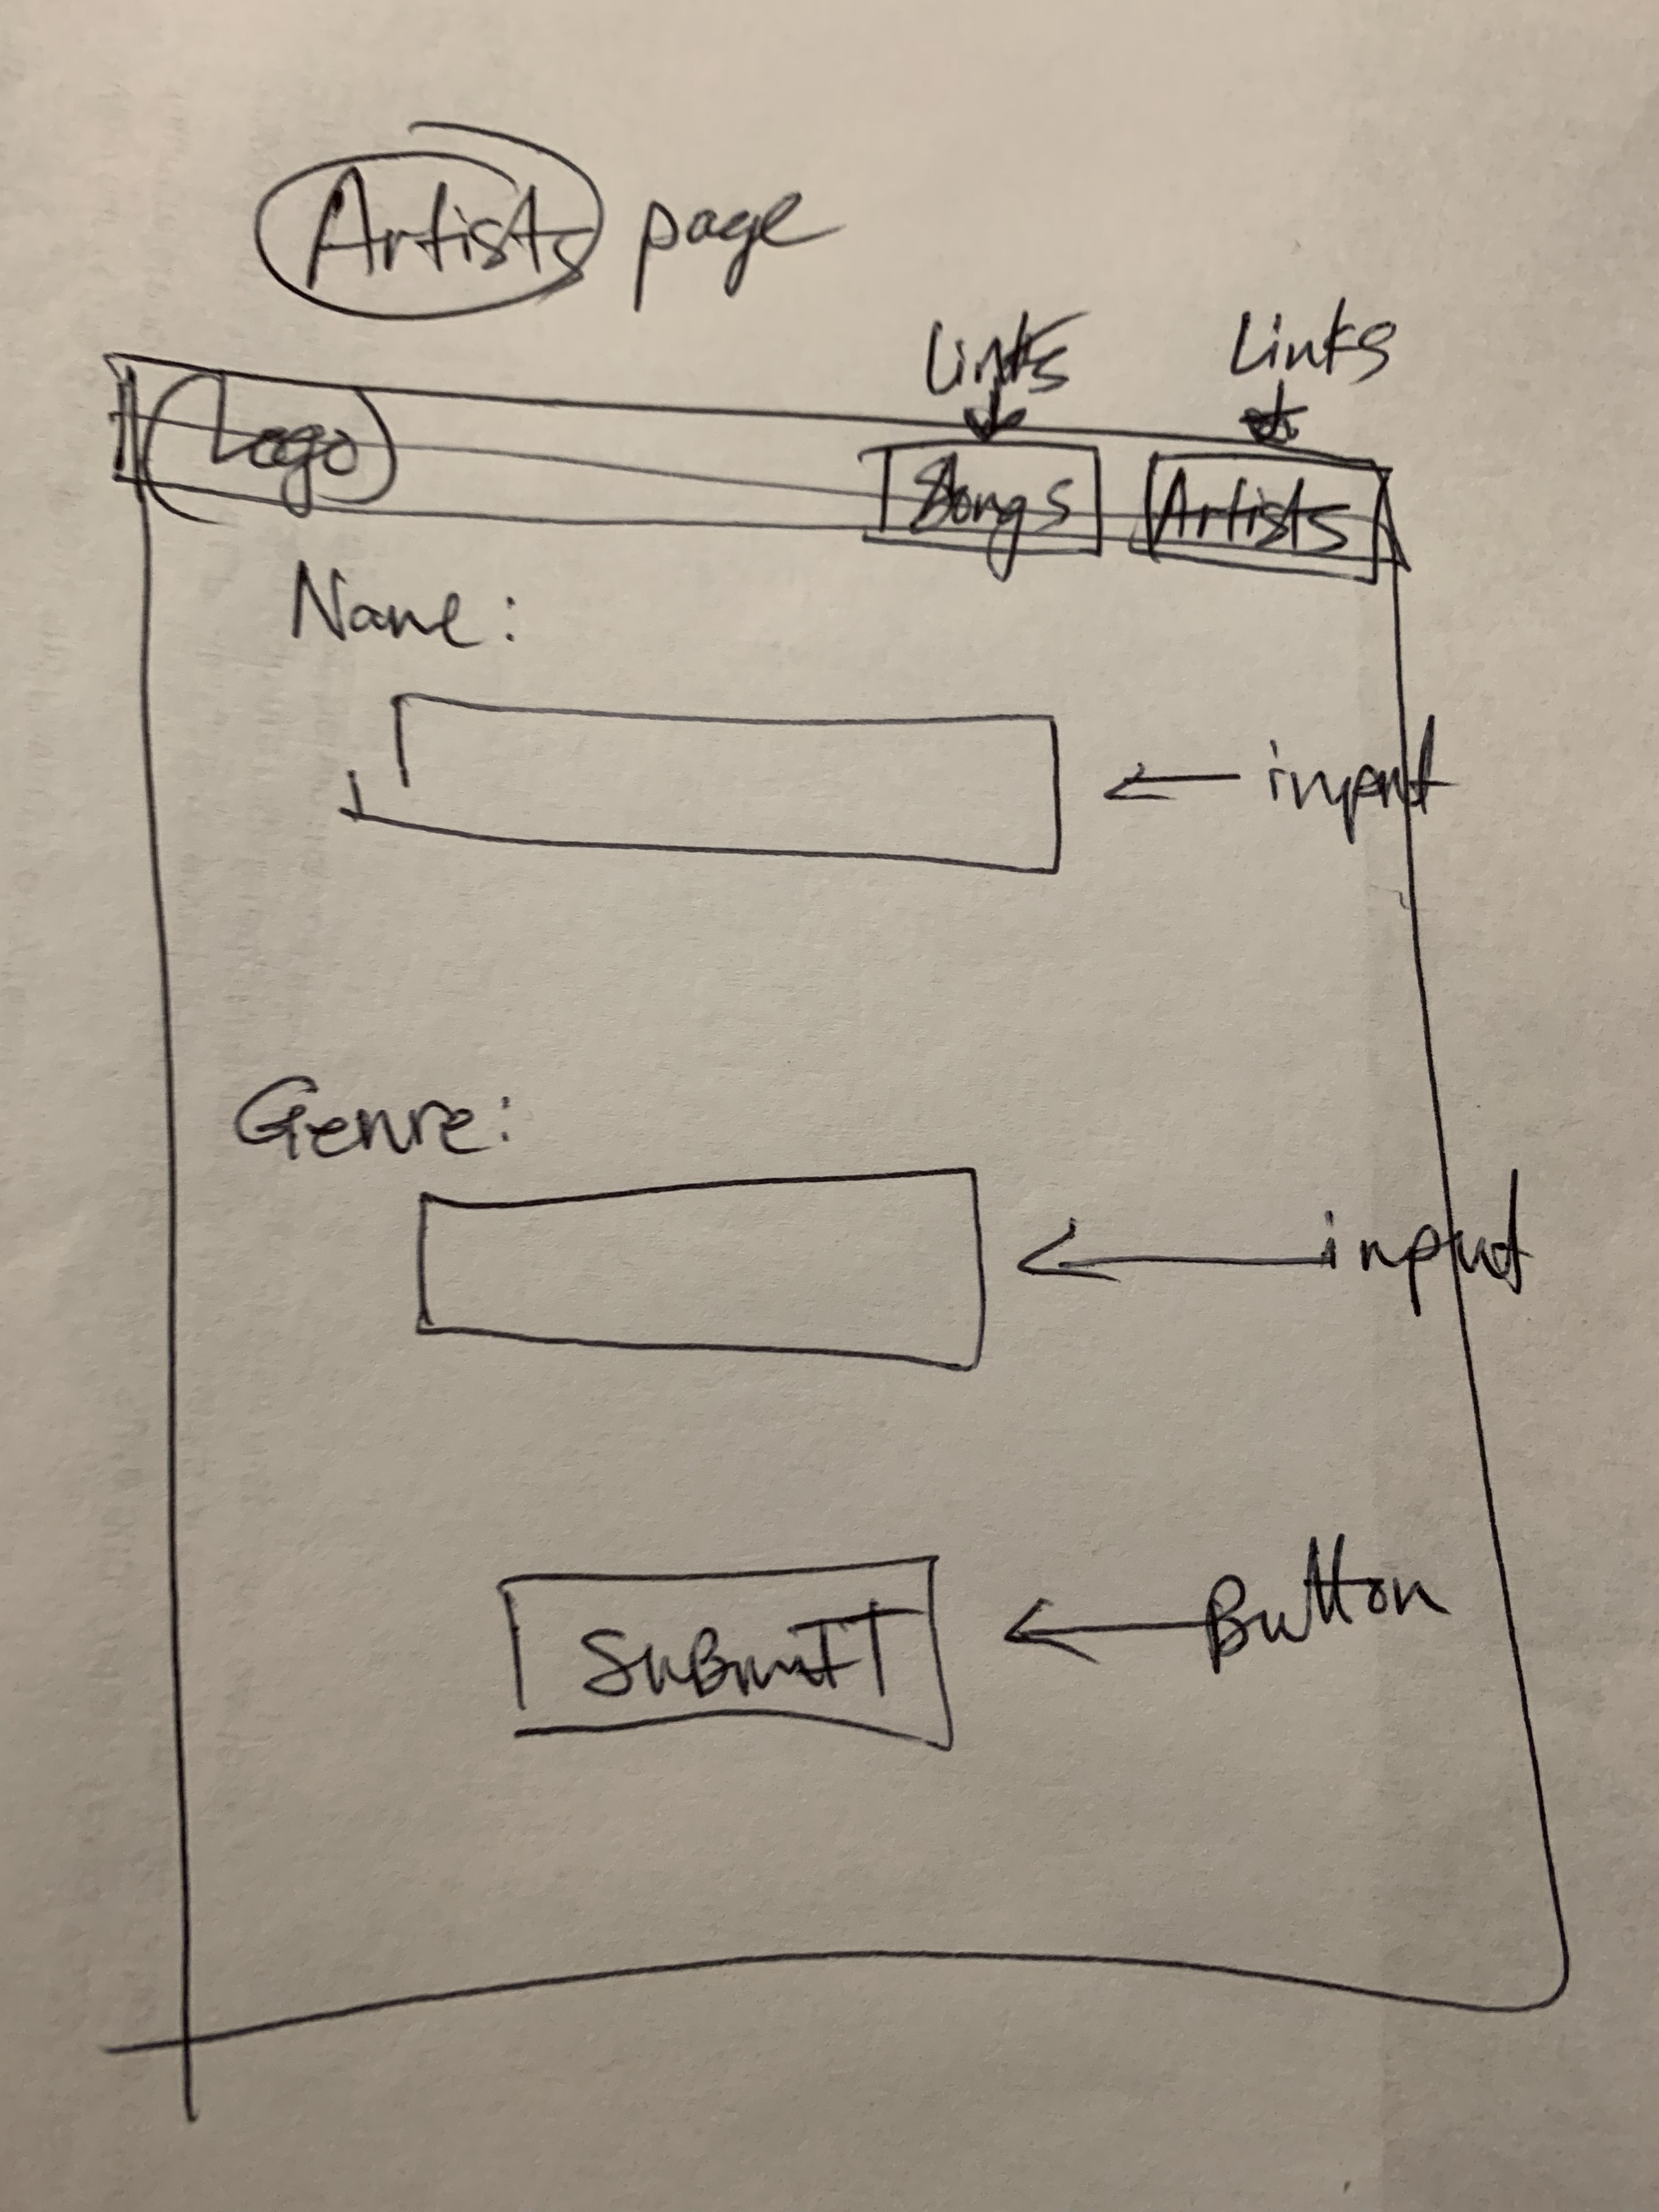 Artists page
Links Links
Logo Songs Artists
Name:
input
Genre:
input
SUBmIT Button